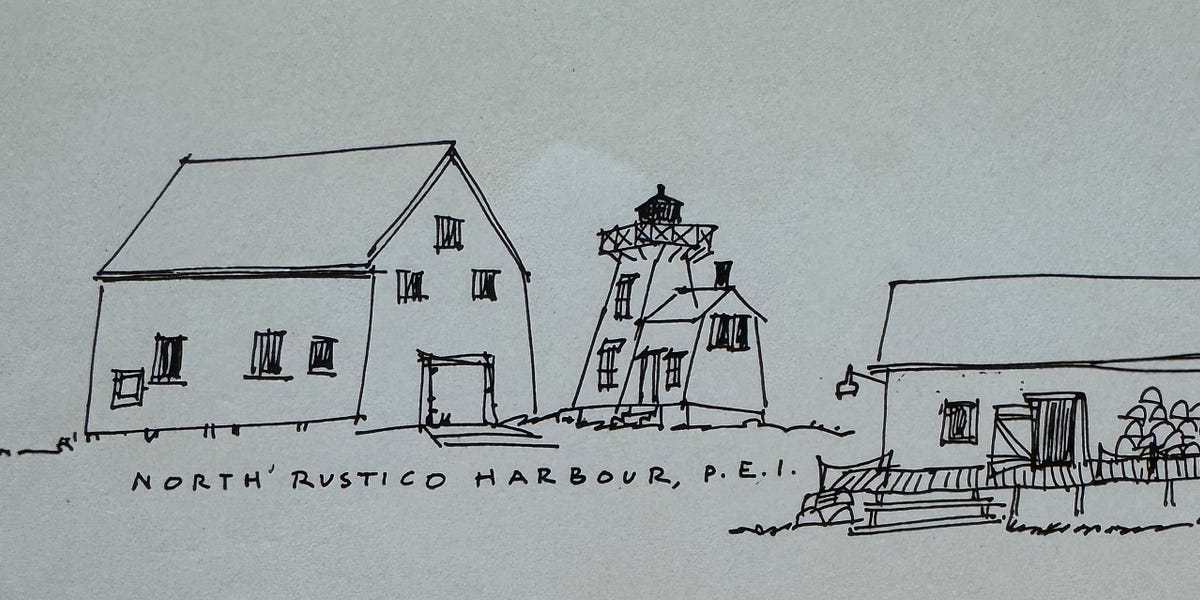 NORTH' RUSTICO HARBOUR, P.E.I.